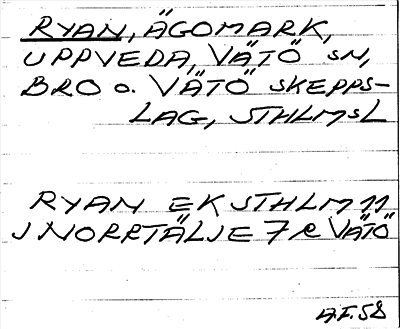 RYAN, ÄGOMARK,
UPPVEDA, VÄTÖ SN,
BRO o. VÄTÖ SKEPPS-
LAG, STHLMSL
RYAN EK STHLM 11
J NORRTÄLJE 7 R VÄTÖ
A.F.58